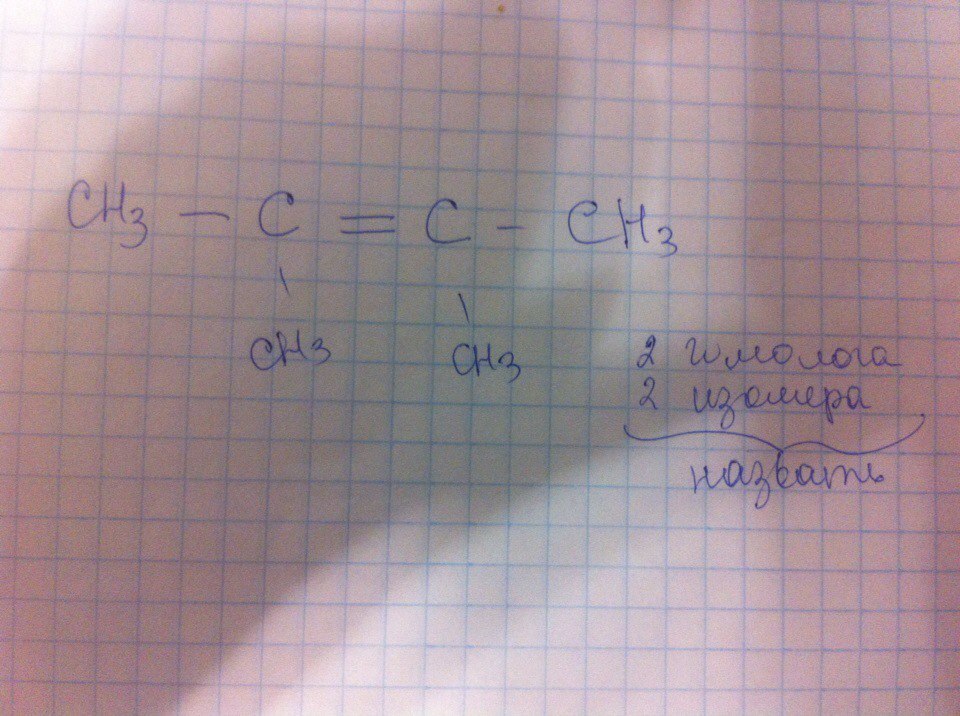 CH3 — C = C - CH3
CH3 CH3
2 гомолога
2 изомера
назвать